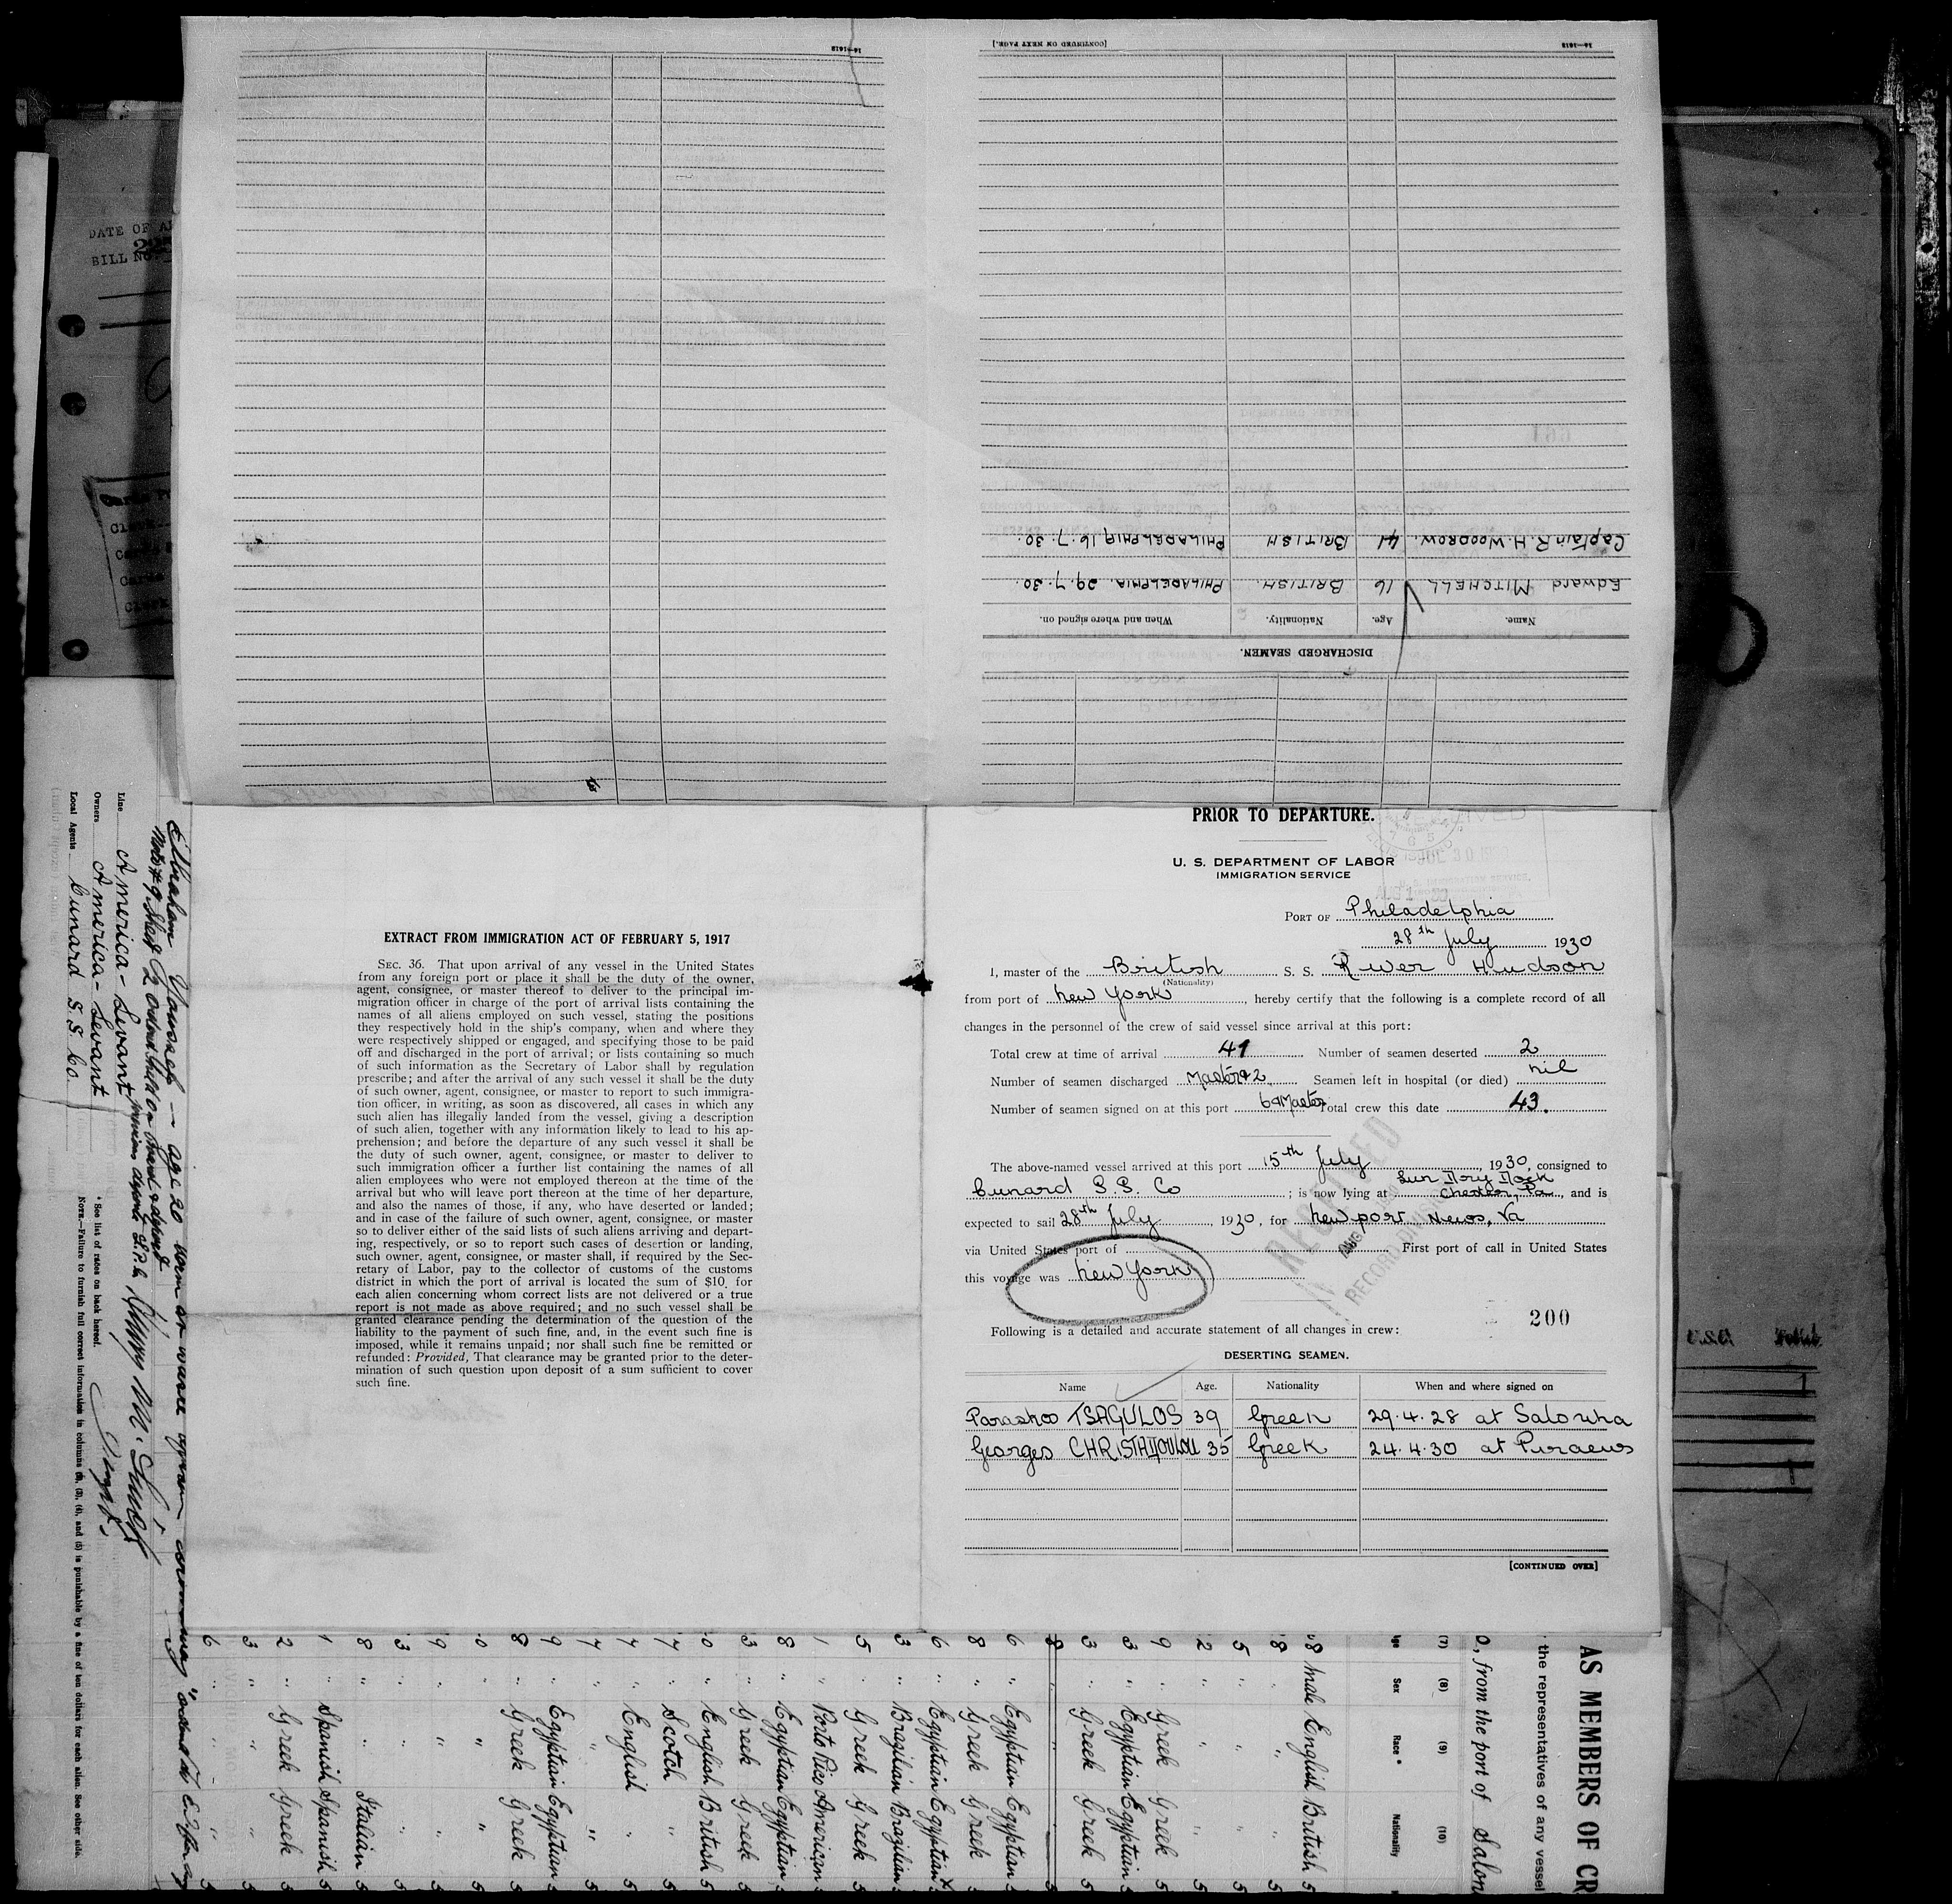 [CONTINUED ON NEXT PAGE.]
16—1612
16—1612
DISCHARGED SEAMEN.
Name. Age. Nationality. When and where signed on.
Edward MITCHELL 16 BRITISH. PHILADELPHIA. 29.7.30.
Captain R.H. WOODROW. 41 BRITISH PHILADELPHIA 16.7.30.
EXTRACT FROM IMMIGRATION ACT OF FEBRUARY 5, 1917
SEC. 36. That upon arrival of any vessel in the United States
from any foreign port or place it shall be the duty of the owner,
agent, consignee, or master thereof to deliver to the principal im-
migration officer in charge of the port of arrival lists containing the
names of all aliens employed on such vessel, stating the positions
they respectively hold in the ship's company, when and where they
were respectively shipped or engaged, and specifying those to be paid
off and discharged in the port of arrival; or lists containing so much
of such information as the Secretary of Labor shall by regulation
prescribe; and after the arrival of any such vessel it shall be the duty
of such owner, agent, consignee, or master to report to such immigra-
tion officer, in writing, as soon as discovered, all cases in which any
such alien has illegally landed from the vessel, giving a description
of such alien, together with any information likely to lead to his ap-
prehension; and before the departure of any such vessel it shall be
the duty of such owner, agent, consignee, or master to deliver to
such immigration officer a further list containing the names of all
alien employees who were not employed thereon at the time of the
arrival but who will leave port thereon at the time of her departure,
and also the names of those, if any, who have deserted or landed;
and in case of the failure of such owner, agent, consignee, or master
so to deliver either of the said lists of such aliens arriving and depart-
ing, respectively, or so to report such cases of desertion or landing,
such owner, agent, consignee, or master shall, if required by the Sec-
retary of Labor, pay to the collector of customs of the customs
district in which the port of arrival is located the sum of $10 for
each alien concerning whom correct lists are not delivered or a true
report is not made as above required; and no such vessel shall be
granted clearance pending the determination of the question of the
liability to the payment of such fine, and, in the event such fine is
imposed, while it remains unpaid; nor shall such fine be remitted or
refunded: Provided, That clearance may be granted prior to the deter-
mination of such question upon deposit of a sum sufficient to cover
such fine.
PRIOR TO DEPARTURE.
U. S. DEPARTMENT OF LABOR
IMMIGRATION SERVICE
PORT OF Philadelphia
28th July 1930
I, master of the British S. S. River Hudson
(Nationality)
from port of New York, hereby certify that the following is a complete record of all
changes in the personnel of the crew of said vessel since arrival at this port:
Total crew at time of arrival 41 Number of seamen deserted 2
Number of seamen discharged Master & 2 Seamen left in hospital (or died) nil
Number of seamen signed on at this port 6 & Master Total crew this date 43.
The above-named vessel arrived at this port 15th July, 1930, consigned to
Cunard S.S. Co; is now lying at Sun Dry Dock Chester, Pa, and is
expected to sail 28th July, 1930, for Newport News, Va
via United States port of First port of call in United States
this voyage was New York
200
Following is a detailed and accurate statement of all changes in crew:
DESERTING SEAMEN.
Name Age. Nationality When and where signed on
Paraskoo TSAGULOS 39 Greek 29.4.28 at Salonika
Georges 35 Greek 24.4.30 at Piraeus
[CONTINUED OVER]
DATE OF
BILL NO.
Line America-Levant
Owners America-Levant
Local Agents Cunard S.S. Co.
* See list of races on back hereof.
NOTE.—Failure to furnish full correct information in columns (2), (3), (4), and (5) is punishable by a fine of ten dollars for each alien. See other side.
AS MEMBERS OF CR
the representatives of any vessel
, from the port of Salon
(7) (8) (9) (10)
Sex Race * Nationality
8 male English British 5
8 " " " 5
5 " " " 5
2 " " " 5
9 " Greek Greek 5
3 " Egyptian Egyptian 5
3 " Greek Greek 5
6 " Egyptian Egyptian 5
8 " Greek Greek 5
6 " Egyptian Egyptian 5
3 " Brazilian Brazilian 5
5 " Greek Greek 5
1 " Porto Rico American 5
8 " Egyptian Egyptian 5
3 " Greek Greek 5
0 " English British 5
7 " Scotch " 5
7 " English " 5
7 " " " 5
9 " Egyptian Egyptian 5
8 " Greek Greek 5
0 " " " 5
9 " " " 5
3 " " " 5
8 " " Italian 5
1 " Spanish Spanish 5
2 " Greek Greek 5
3 " " " 5
6 " " " 5